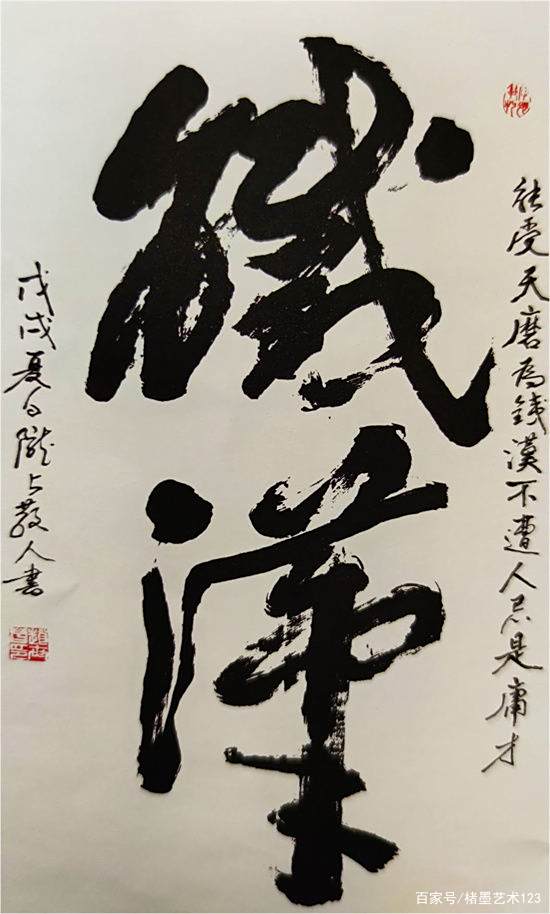 能受天磨為鐵漢不遭人忌是庸才
鐵漢
戊戌夏日隴上散人書
百家号/楮墨艺术123